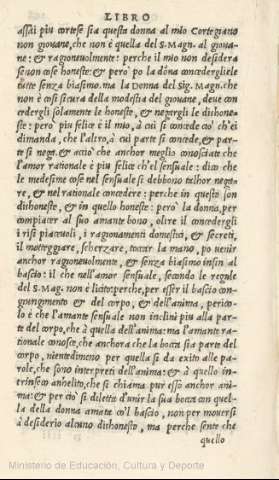 LIBRO
assai piu cortese sia questa donna al mio Cortegiano
non giouane, che non è quella del S. Magn. al gioua-
ne: & ragioneuolmente: perche il mio non desidera
se non cose honeste: & pero po la dōna concederglie le
tutte senza biasimo. ma la Donna del Sig. Magn. che
non è cosi sicura della modestia del giouane, deue con
cedergli solamente le honeste, & negargli le dishone-
ste: pero piu felice è il mio, à cui si concede cio ch'ei
dimanda, che l'altro, à cui parte si concede, & par-
te si nega. & accio che anchor meglio conosciate che
l'amor rationale è piu felice ch'el sensuale: dico che
le medesime cose nel sensuale si debbono talhor nega-
re, & nel rationale concedere: perche in questo son
dishoneste, & in quello honeste: pero la donna, per
compiacer al suo amante bono, oltre il concedergli
i risi piaceuoli, i ragionamenti domestici, & secreti,
il motteggiare, scherzare, toccar la mano, po uenir
anchor ragioneuolmente, & senza biasimo insin al
bascio: il che nell'amor sensuale, secondo le regule
del S. Mag. non è licito: perche, per esser il bascio con
giungimento & del corpo, & dell'anima, perico-
lo è che l'amante sensuale non inclini piu alla par-
te del corpo, che à quella dell'anima: ma l'amante ra-
tionale conosce, che anchora che la bocca sia parte del
corpo, nientedimeno per quella si da exito alle pa-
role, che sono interpreti dell'anima: & à quello in-
trinseco anhelito, che si chiama pur esso anchor ani-
ma: & per cio si diletta d'unir la sua bocca con quel-
la della donna amata co'l bascio, non per mouersi
à desiderio alcuno dishonesto, ma perche sente che
quello
Ministerio de Educación, Cultura y Deporte